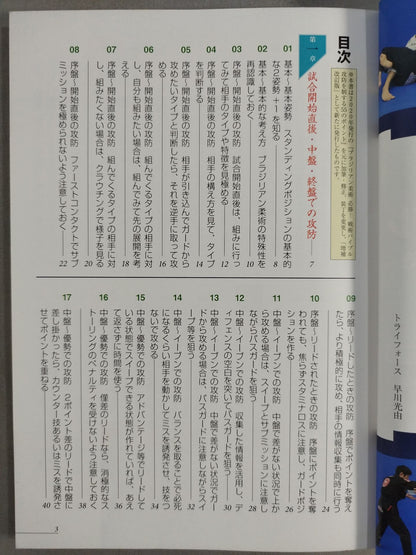 トライフォース 早川光由
※本書は2020年発行の『ブラジリアン柔術 必勝 戦術バイブル
攻防を制する55のポイント』を元に加筆・修正、装丁を変更し、「増補
改訂版」として新たに発行したものです。
目次
第一章 試合開始直後・中盤・終盤での攻防 7
01 基本〜基本姿勢 スタンディングポジションの基本的
な2姿勢+1を知る 8
02 基本〜基本的な考え方 ブラジリアン柔術の特殊性を
再認識しておく 10
03 序盤〜開始直後の攻防 試合開始直後は、組みに行っ
てみて相手のタイプや特徴を見極める 12
04 序盤〜開始直後の攻防 相手の構え方を見て、タイプ
を判断する 14
05 序盤〜開始直後の攻防 相手が引き込んでガードから
攻めたいタイプと判断したら、それを逆手に取って攻
めていく 16
06 序盤〜開始直後の攻防 組んでくるタイプの相手に対
し、自分も組みたい場合は、組んでみて先の展開を考
える 18
07 序盤〜開始直後の攻防 組んでくるタイプの相手に対
し、組みたくない場合は、クラウチングで様子を見る
20
08 序盤〜開始直後の攻防 ファーストコンタクトでサブ
ミッションを極められないよう注意しておく 22
09 序盤〜リードしたときの攻防 序盤でポイントを奪え
たら、より積極的に攻め、相手の情報収集も同時に行う
24
10 序盤〜リードされたときの攻防 序盤にポイントを奪
われても、焦らずスタミナロスに注意し、ガードポジ
ションを作る 26
11 中盤〜イーブンでの攻防 中盤で差がない状況で上か
ら攻める場合は、スイープとサブミッションに注意し
ながらパスガードを狙う 28
12 中盤〜イーブンでの攻防 収集した情報を活用し、デ
ィフェンスの空白を突いてパスガードを狙う 30
13 中盤〜イーブンでの攻防 中盤で差がない状況でガー
ドから攻める場合は、パスガードに注意しながらスイ
ープ等を狙う 32
14 中盤〜イーブンでの攻防 バランスを取ることで必死
になるくらい相手を動かしてミスを誘発させ、技をつ
ないで攻める 34
15 中盤〜優勢での攻防 アドバンテージ等でリードして
いる状態でスイープできる状態が作れていれば、あえ
て返さずに時間を使う 36
16 中盤〜優勢での攻防 僅差のリードなら、消極的なス
トーリングのペナルティを受けないよう注意しておく
38
17 中盤〜優勢での攻防 2ポイント差のリードで中盤に
差し掛かったら、カウンター技あるいはミスを誘発さ
せてポイントを重ねる 40
3